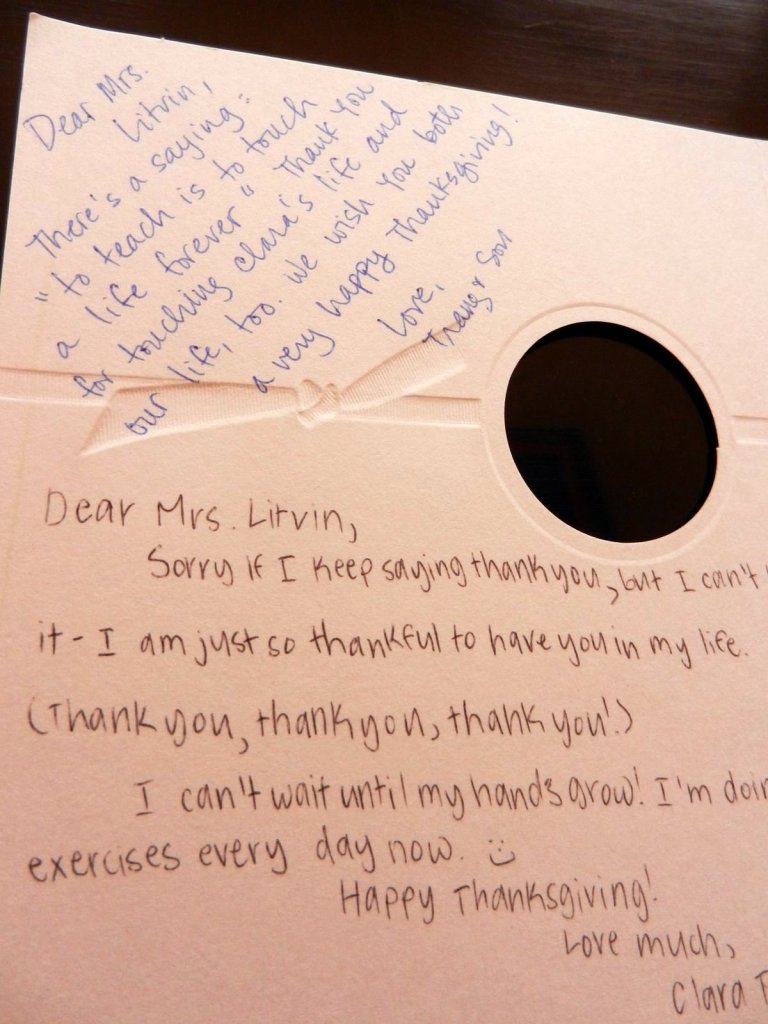 Dear Mrs.
Litvin,
There's a saying:
"to teach is to touch
a life forever" Thank you
for touching Clara's life and
our life, too. We wish you both
a very happy Thanksgiving!
Love,
Trang & Son
Dear Mrs. Litvin,
Sorry if I keep saying thank you, but I can't
it - I am just so thankful to have you in my life.
(Thank you, thank you, thank you!)
I can't wait until my hands grow! I'm doin
exercises every day now. :)
Happy Thanksgiving!
Love much,
Clara